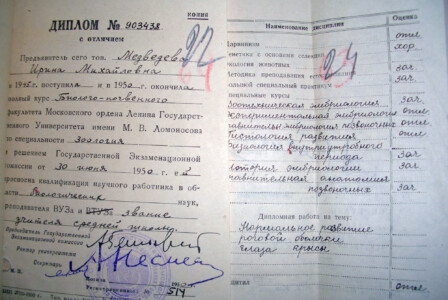 копия
ДИПЛОМ № 903438
с отличием
Предъявитель сего тов. Медведева
Ирина Михайловна
в 1945 г. поступила и в 1950 г. окончила
полный курс Биолого-почвенного
факультета Московского ордена Ленина Государст-
Университета имени М. В. Ломоносова
по специальности зоология
и решением Государственной Экзаменационной
комиссии от 30 июня 1950 г.
присвоена квалификация научного работника в об-
ласти биологических наук,
преподавателя ВУЗа и звание
учителя средней школы.
Председатель Государственной
Экзаменационной комиссии
Ректор
Секретарь
М. П.
Москва
Регистрационный № 514
92
Наименование дисциплин
Оценка
Дарвинизм отл.
Генетика с основами селекции хор.
Экология животных зач.
Методика преподавания зач.
Большой специальный практикум
Специальные курсы
зоотехническая эмбриология зач.
экспериментальная эмбриология отл.
сравнительная эмбриология позвоночных отл.
гистология развития отл.
физиология внутриутробного
периода зач.
история эмбриологии зач.
сравнительная анатомия
позвоночных зач.
24
Дипломная работа на тему:
Нормальное развитие
роговой оболочки
глаза крысы
отл